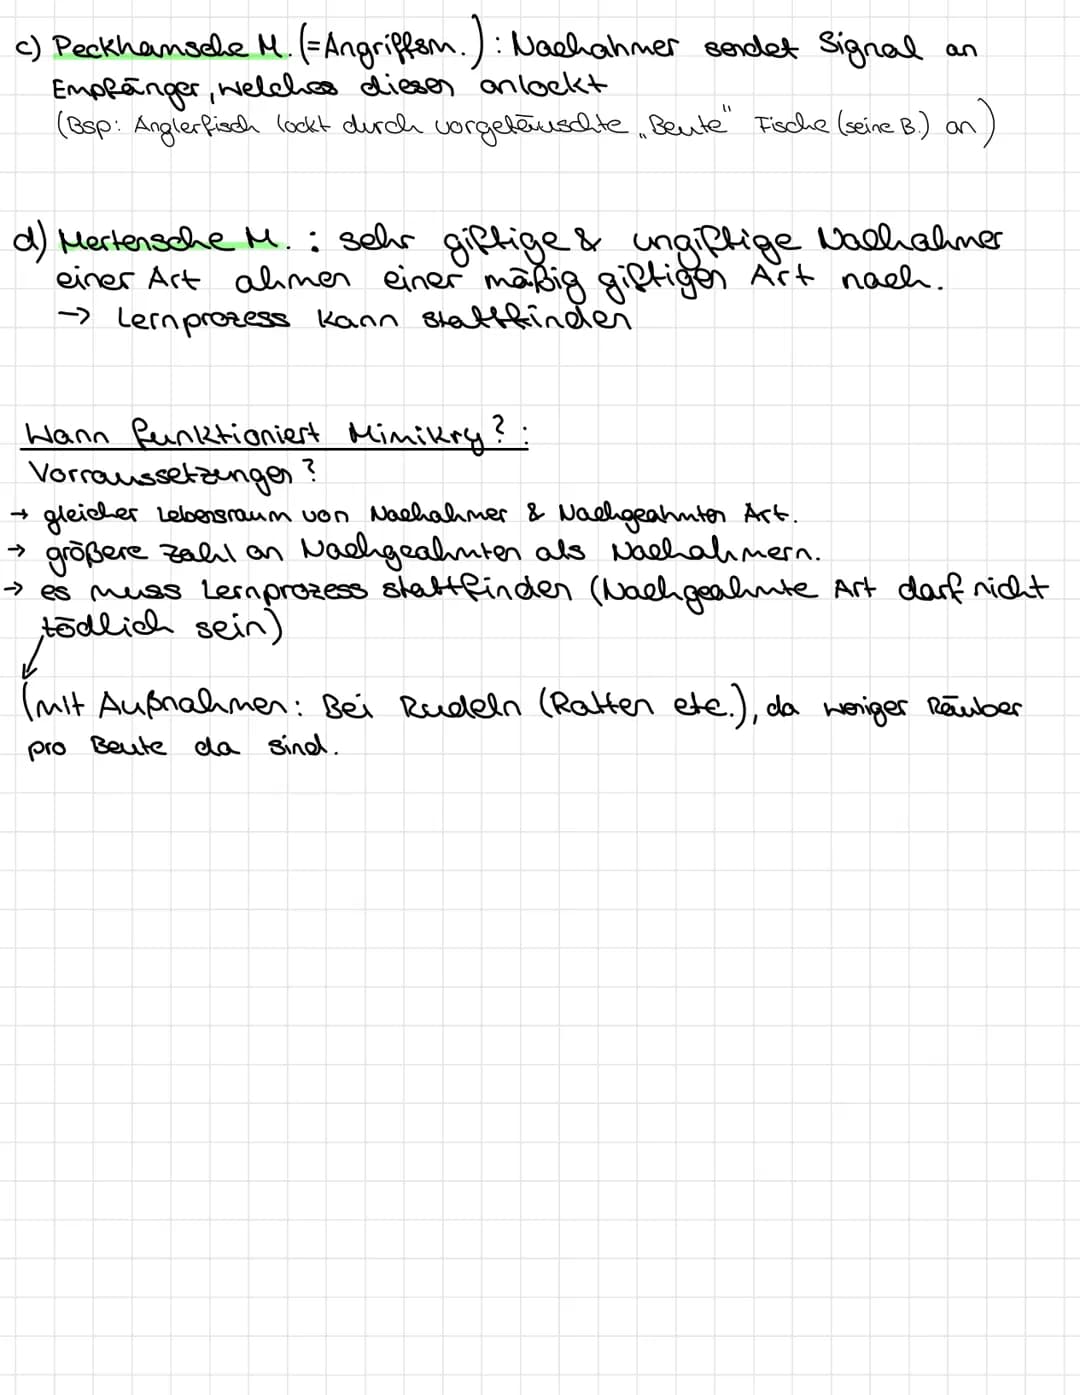 c) Peckhamsche M. (=Angriffsm.): Nachahmer sendet Signal an
Empfänger, welches diesen anlockt
(Bsp: Anglerfisch lockt durch vorgetäuschte „Beute" Fische (seine B.) an)
d) Mertensche M. : sehr giftige & ungiftige Nachahmer
einer Art ahmen einer mäßig giftigen Art nach.
→ Lernprozess kann stattfinden
Wann funktioniert Mimikry? :
Vorraussetzungen?
→ gleicher Lebensraum von Nachahmer & Nachgeahmten Art.
→ größere Zahl an Nachgeahmten als Nachahmern.
→ es muss Lernprozess stattfinden (Nachgeahmte Art darf nicht
tödlich sein)
(mit Außnahmen: Bei Rudeln (Ratten etc.), da weniger Räuber
pro Beute da sind.